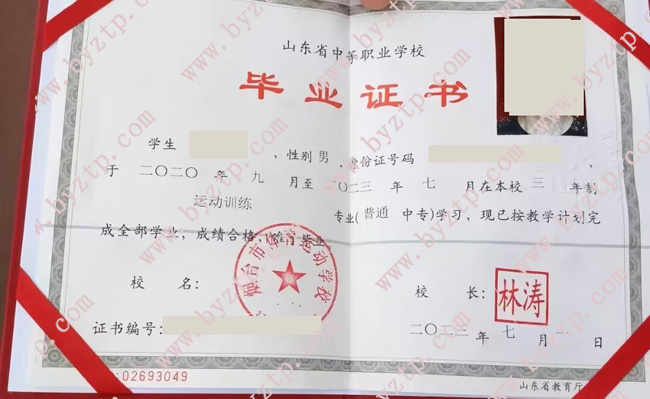 山东省中等职业学校
毕业证书
学生 ，性别 男 ，身份证号码 ，
于 二〇二〇 年 九 月至 二〇二三 年 七 月在本校 三 年制
运动训练 专业(普通 中专)学习，现已按教学计划完
成全部学业，成绩合格，准予毕业
校 名：
烟台市 运动学校
校 长：
林涛
证书编号：
二〇二三 年 七 月 日
:02693049
山东省教育厅
www.byztp.com